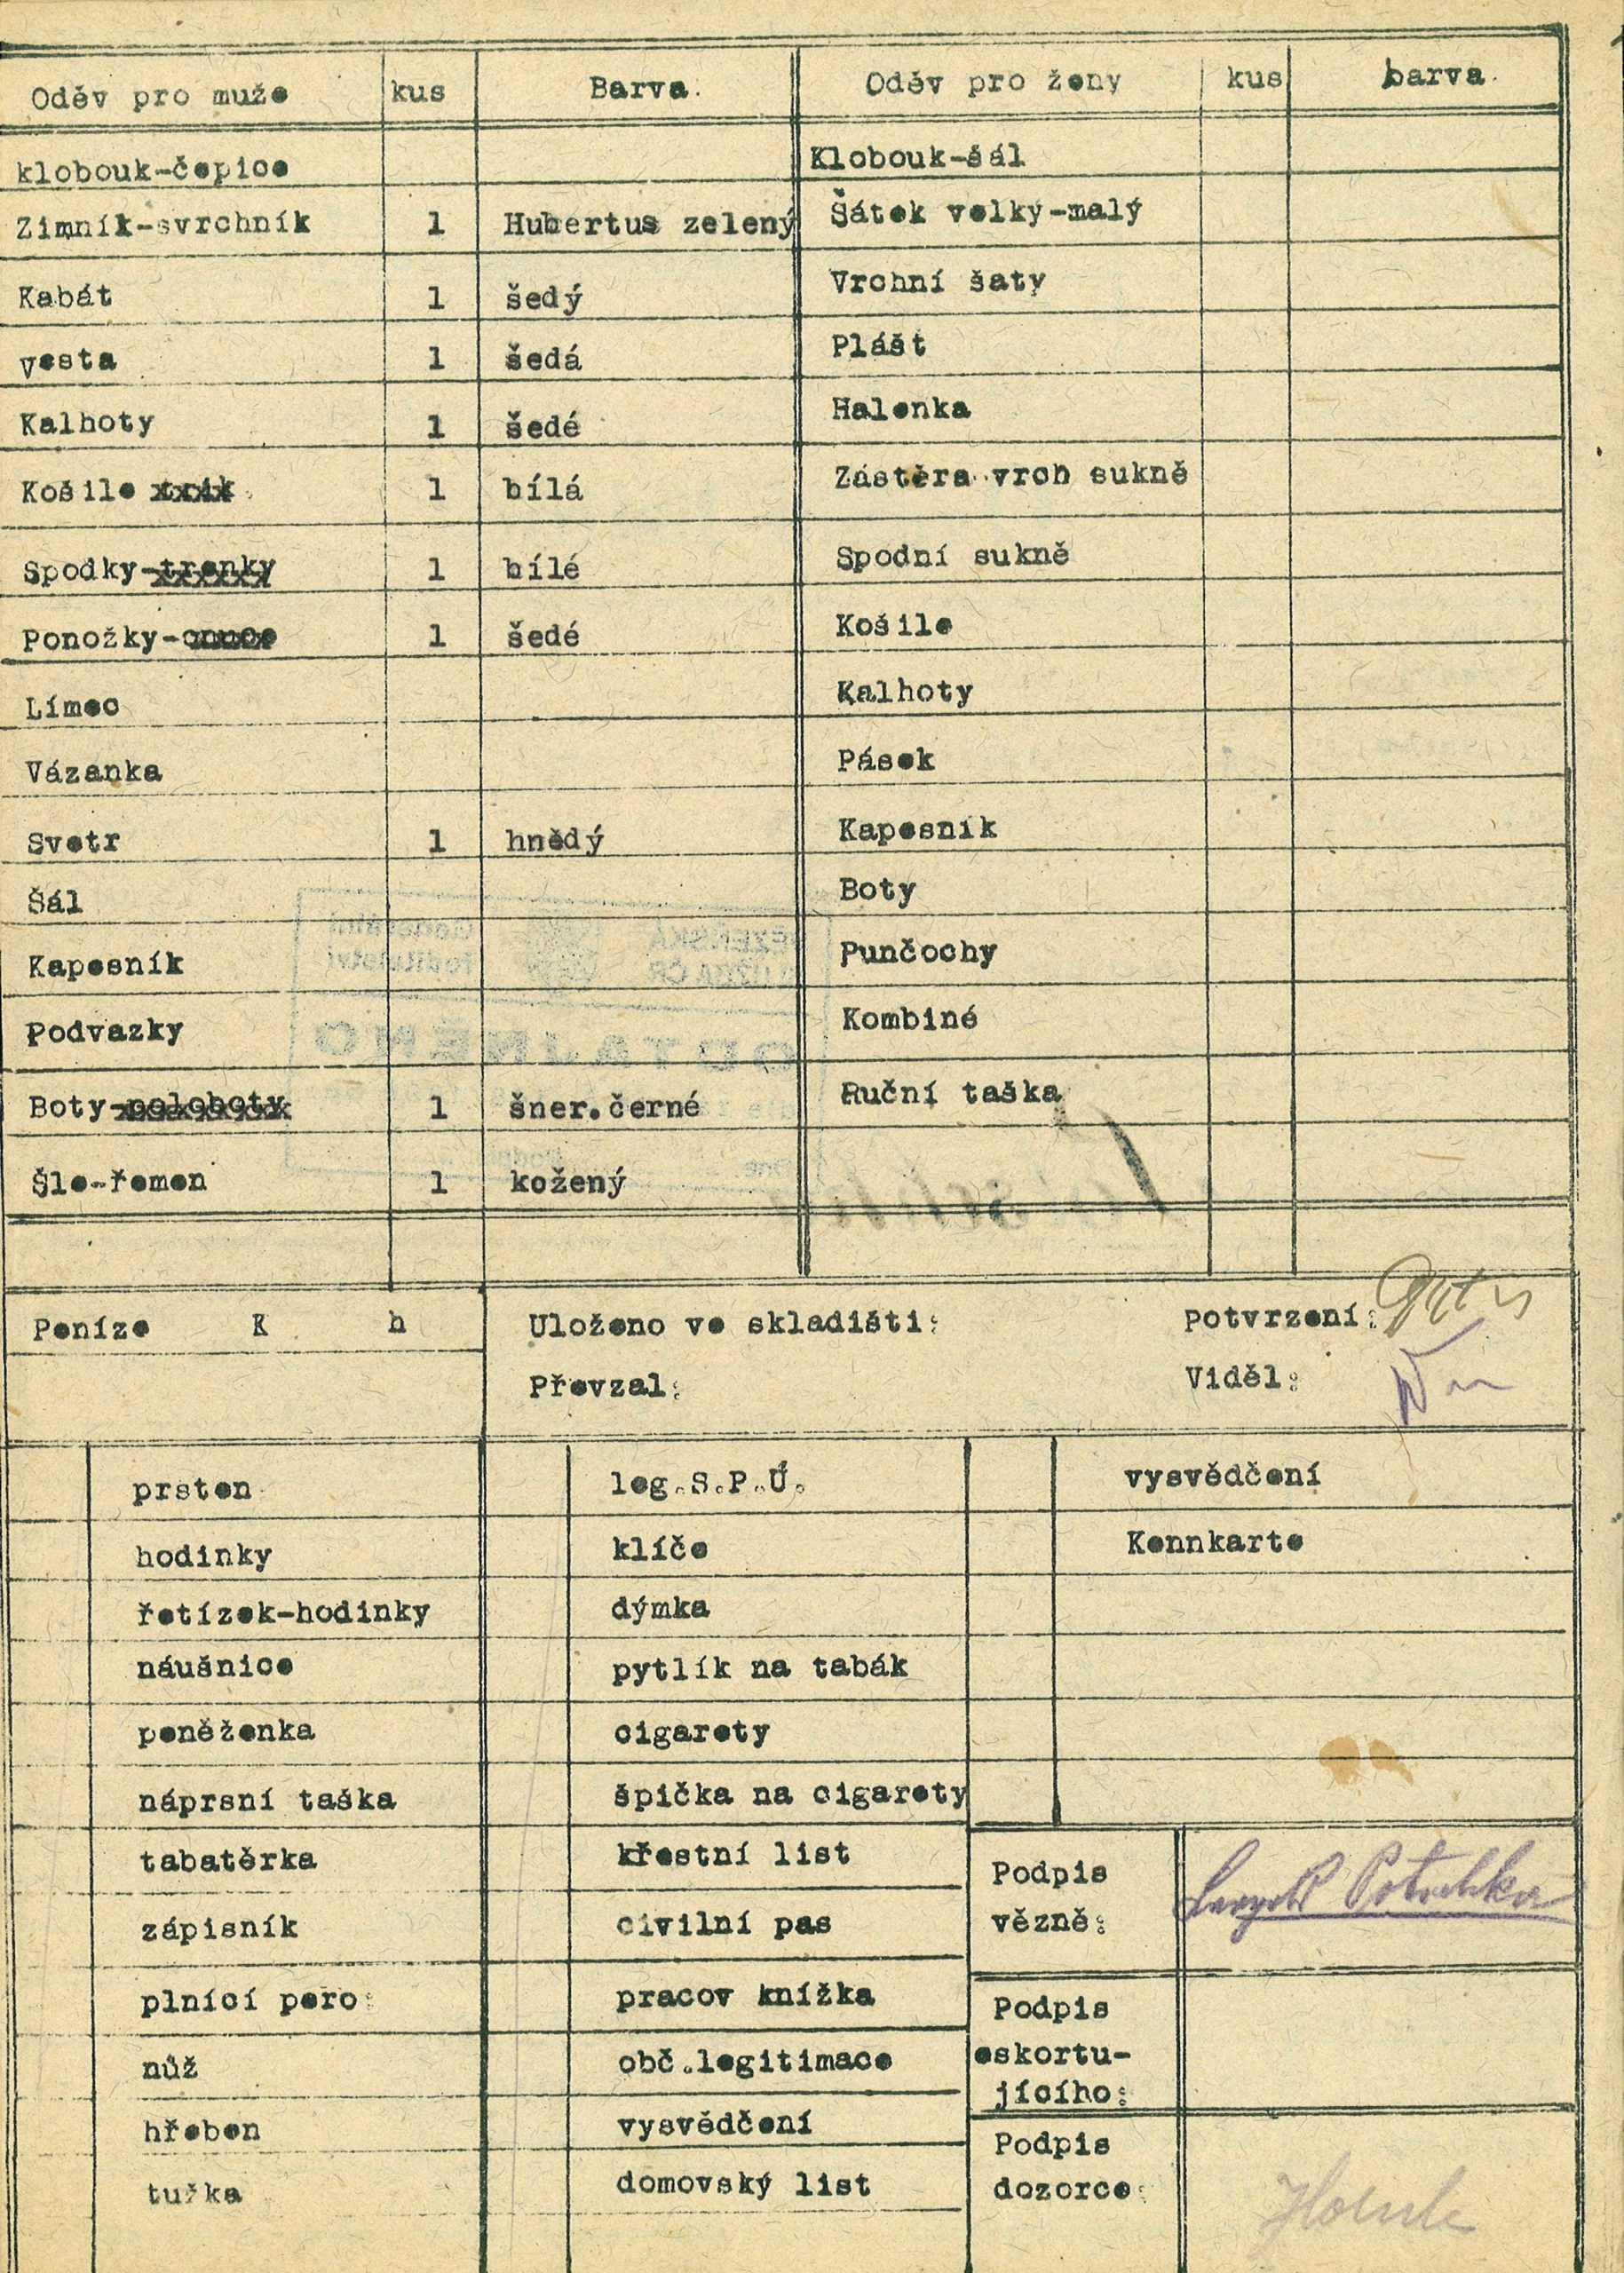 Oděv pro muže kus Barva. Oděv pro ženy kus barva.
klobouk-čepice Klobouk-šál
Zimník-svrchník 1 Hubertus zelený Šátek velký-malý
Kabát 1 šedý Vrchní šaty
vesta 1 šedá Plášt
Kalhoty 1 šedé Halenka
Košile trik 1 bílá Zástěra vrch sukně
Spodky-trenky 1 bílé Spodní sukně
Ponožky-onuce 1 šedé Košile
Límec Kalhoty
Vázanka Pásek
Svetr 1 hnědý Kapesník
Šál Boty
Kapesník Punčochy
Podvazky Kombiné
Boty-poloboty 1 šner.černé Ruční taška
Šle-řemen 1 kožený
Peníze K h Uloženo ve skladišti: potvrzení:
Převzal: Viděl:
prsten leg.S.P.Ú. vysvědčení
hodinky klíče Kennkarte
řetízek-hodinky dýmka
náušnice pytlík na tabák
peněženka cigarety
náprsní taška špička na cigarety
tabatěrka křestní list Podpis
zápisník civilní pas vězně:
plnící pero: pracov knížka Podpis
nůž obč.legitimace eskortu-
jícího:
hřeben vysvědčení Podpis
tužka domovský list dozorce:
VĚZEŇSKÁ Generální
SLUŽBA ČR ředitelství
ODTAJNĚNO